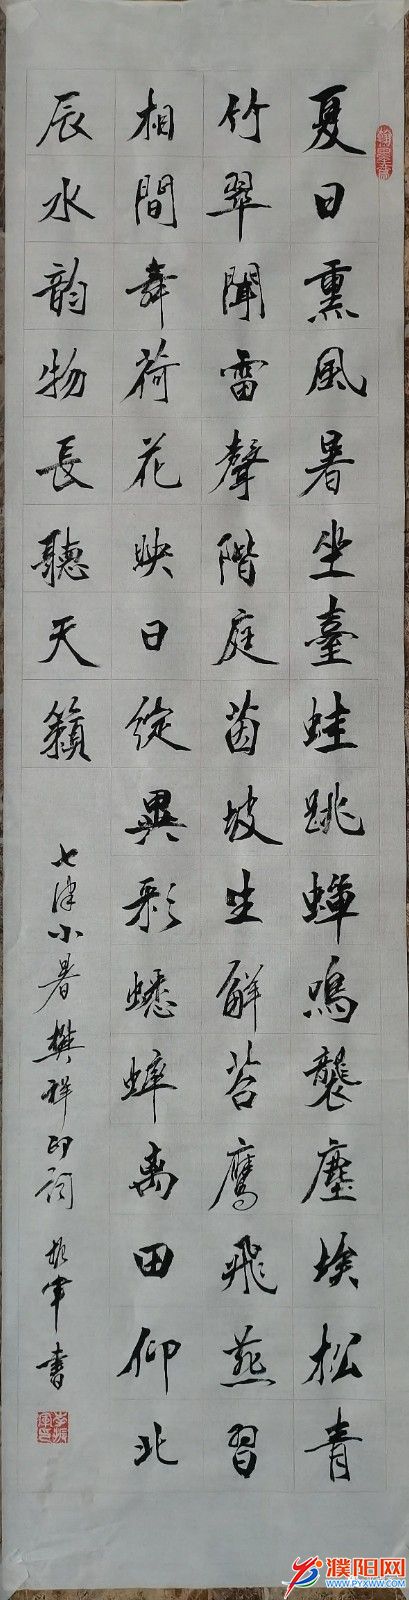 夏日熏風暑坐臺蛙跳蟬鳴襲塵埃松青
竹翠聞雷聲階庭茵坡生鮮苔鷹飛燕習
相間舞荷花映日綻異彩蟋蟀离田仰北
辰水韵物長聽天籟
七律小暑樊祥印詞 振军書
濮阳网
WWW.PYXWW.COM